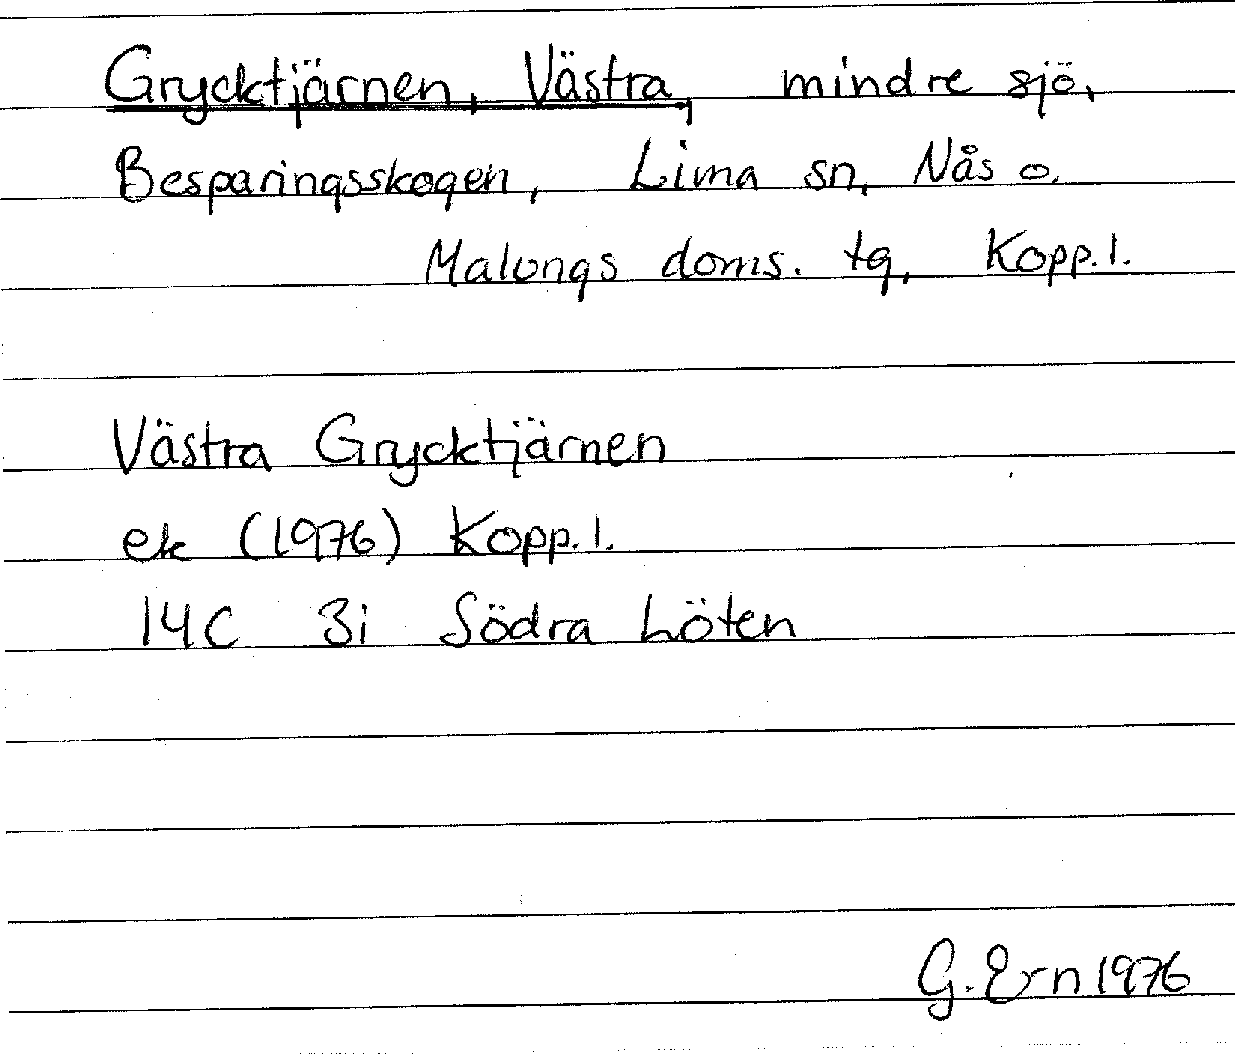 Grycktjärnen, Västra, mindre sjö,
Besparingsskogen, Lima sn, Nås o.
Malungs doms. tg, Kopp.l.
Västra Grycktjärnen
ek (1976) Kopp.l.
14C 3i Södra Löten
G. Ern 1976